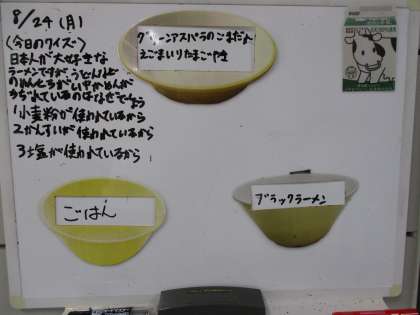 8/24(月)
〈今日のクイズ〉
日本人が大好きな
ラーメンですが、うどんなど
のめんとちがい中かめんが
使われているのはなぜでしょう
1小麦粉が使われているから
2かんすいが使われているから
3塩が使われているから
グリーンアスパラのごまだれ
えごまいりたまご
ごはん
ブラックラーメン